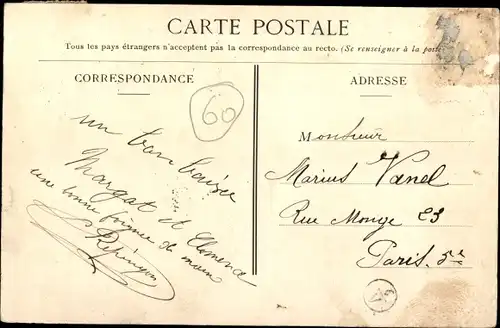 CARTE POSTALE
Tous les pays étrangers n'acceptent pas la correspondance au recto. (Se renseigner à la poste
CORRESPONDANCE
ADRESSE
60
un bon baiser
Margat et Clémence
une bonne poignée de main
Monsieur
Marius Vanel
Rue Monge 23
Paris. 5e